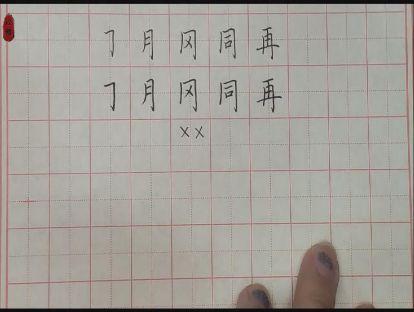 ㇆ 月 冈 同 再
㇆ 月 冈 同 再
××